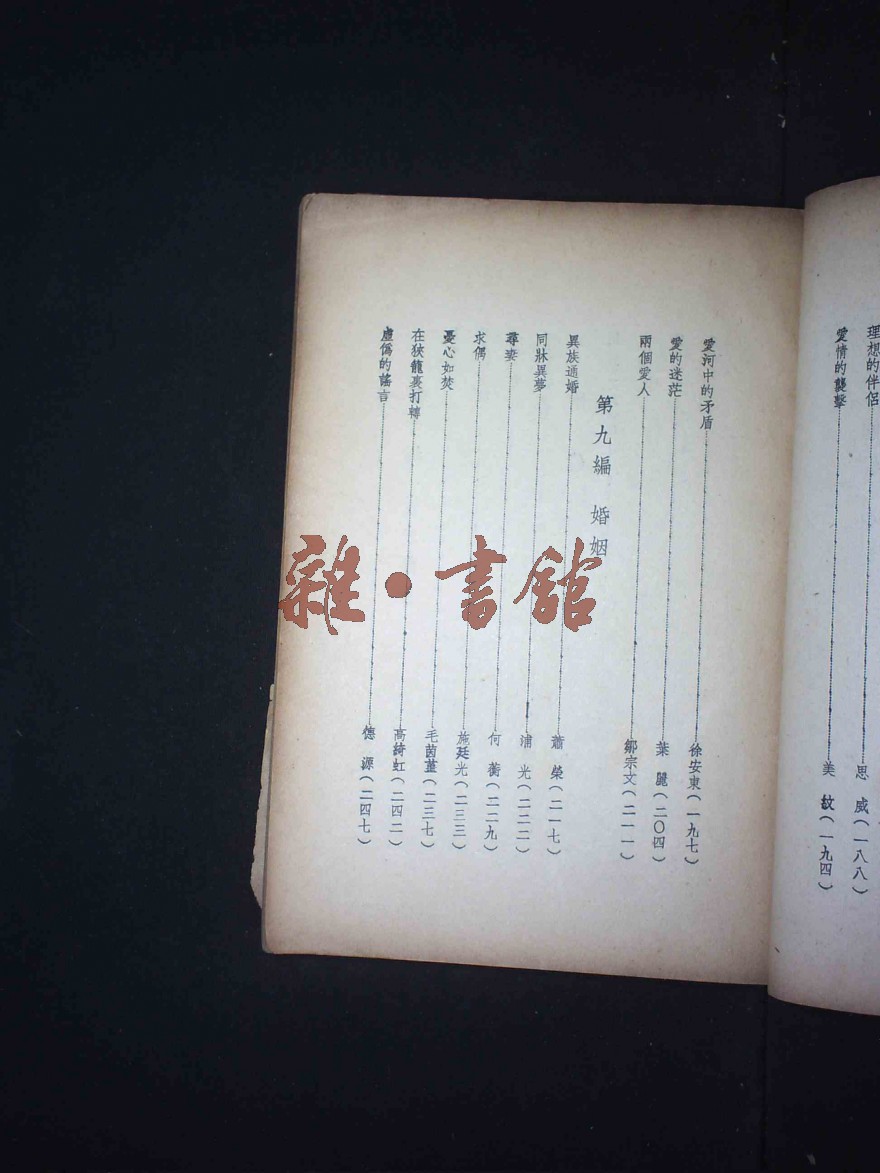 理想的伴侶……思　威(一八八)
愛情的襲擊……美　紋(一九四)
愛河中的矛盾……徐安東(一九七)
愛的迷茫……葉　麗(二〇四)
兩個愛人……鄒宗文(二一一)
第九編　婚姻
異族通婚……蕭　榮(二一七)
同牀異夢……浦　光(二二二)
尋妻……何　蘅(二二九)
求偶……施廷光(二三三)
憂心如焚……毛茵堇(二三七)
在狹籠裏打轉……高綺虹(二四二)
虛僞的謠言……德　源(二四七)
雜·書館